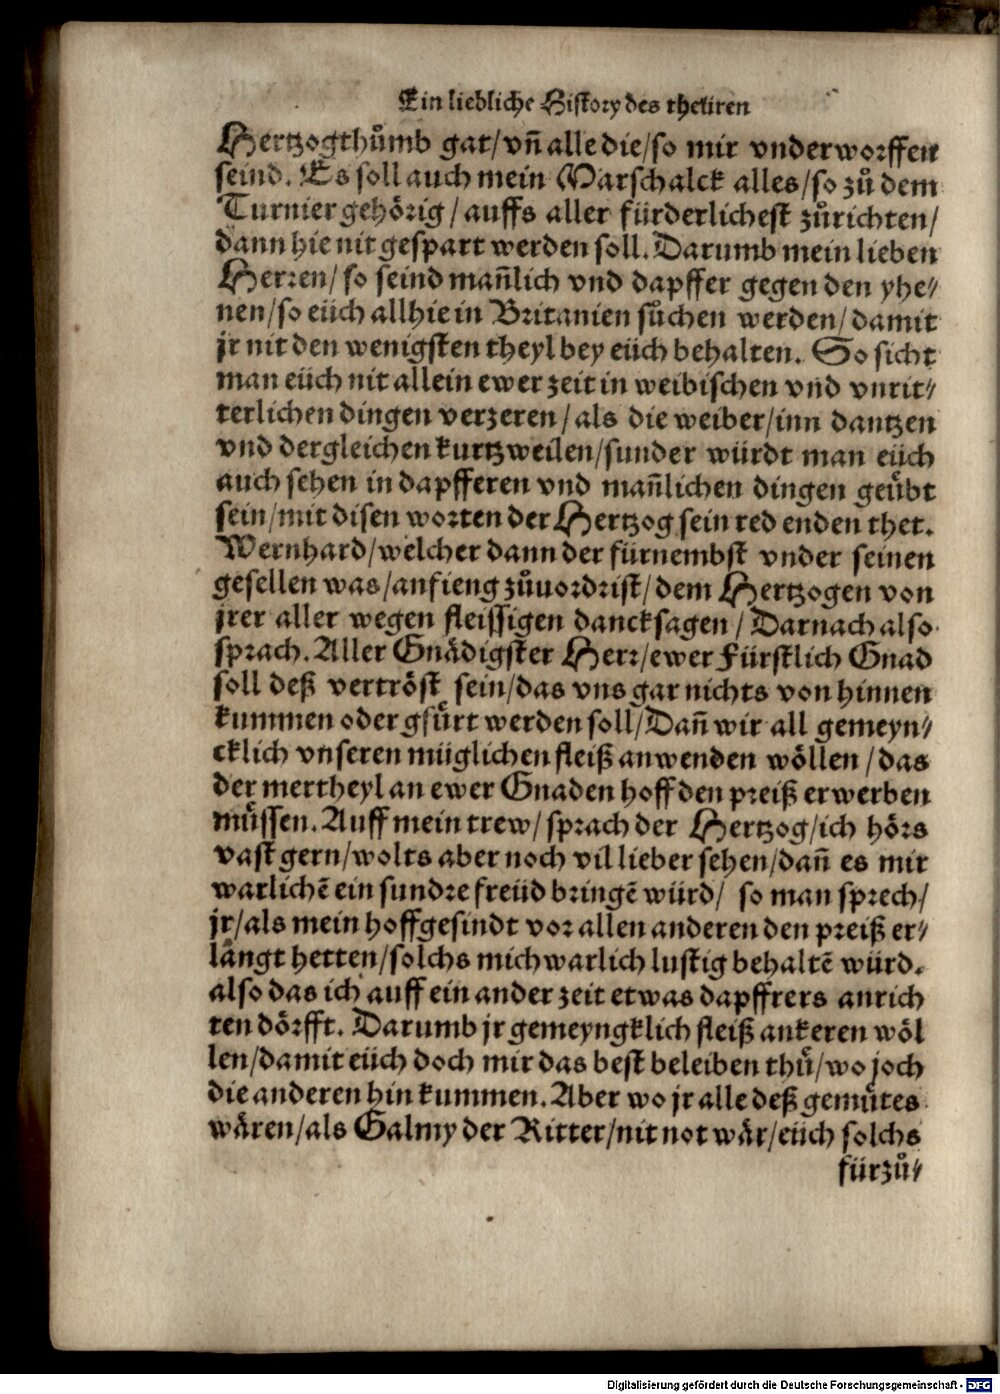 Ein liebliche History des theüren
Hertzogthůmb gar/vñ alle die/so mir vnderworffen
seind. Es soll auch mein Marschalck alles/so zů dem
Turnier gehörig/auffs aller fürderlichest zůrichten/
dann hie nit gespart werden soll. Darumb mein lieben
Herren/so seind mañlich vnd dapffer gegen den yhe⸗
nen/so eüch allhie in Britanien sůchen werden/damit
jr nit den wenigsten theyl bey eüch behalten. So sicht
man eüch nit allein ewer zeit in weibischen vnd vnrit⸗
terlichen dingen verzeren/als die weiber/inn dantzen
vnd dergleichen kurtzweilen/sunder würdt man eüch
auch sehen in dapfferen vnd mañlichen dingen geübt
sein/mit disen worten der Hertzog sein red enden thet.
Wernhard/welcher dann der fürnembst vnder seinen
gesellen was/anfieng zůuordrist/dem Hertzogen von
jrer aller wegen fleissigen dancksagen/Darnach also
sprach. Aller Gnädigster Herr/ewer Fürstlich Gnad
soll deß vertröst sein/das vns gar nichts von hinnen
kummen oder gfürt werden soll/Dañ wir all gemeyn⸗
cklich vnseren müglichen fleiß anwenden wöllen/das
der mertheyl an ewer Gnaden hoff den preiß erwerben
müssen. Auff mein trew/sprach der Hertzog/ich hörs
vast gern/wolts aber noch vil lieber sehen/dañ es mir
warlichē ein sundre freüd bringē würd/ so man sprech/
jr/als mein hoffgesindt vor allen anderen den preiß er⸗
langt hetten/solchs mich warlich lustig behaltē würd.
also das ich auff ein ander zeit etwas dapffrers anrich
ten dörfft. Darumb jr gemeyngklich fleiß ankeren wöl
len/damit eüch doch mir das best beleiben thů/wo joch
die anderen hin kummen. Aber wo jr alle deß gemütes
wären/als Galmy der Ritter/nit not wär/eüch solchs
fürzů⸗
Digitalisierung gefördert durch die Deutsche Forschungsgemeinschaft - DFG